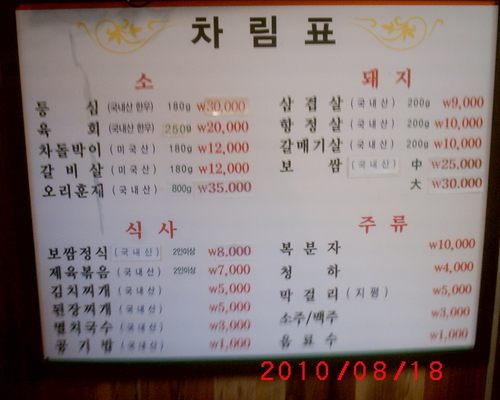 차림표
소
등심 (국내산 한우) 180g ₩30,000
육회 (국내산 한우) 250g ₩20,000
차돌박이 (미국산) 180g ₩12,000
갈비살 (미국산) 180g ₩12,000
오리훈제 (국내산) 800g ₩35.000
돼지
삼겹살 (국내산) 200g ₩9,000
항정살 (국내산) 200g ₩10,000
갈매기살 (국내산) 200g ₩10,000
보쌈 (국내산) 中 ₩25.000
大 ₩30.000
식사
보쌈정식 (국내산) 2인이상 ₩8.000
제육볶음 (국내산) 2인이상 ₩7,000
김치찌개 (국내산) ₩5,000
된장찌개 (국내산) ₩5,000
멸치국수 (국내산) ₩3,000
공기밥 (국내산) ₩1,000
주류
복분자 ₩10,000
청하 ₩4,000
막걸리 (지평) ₩5,000
소주/맥주 ₩3,000
음료수 ₩1,000
2010/08/18